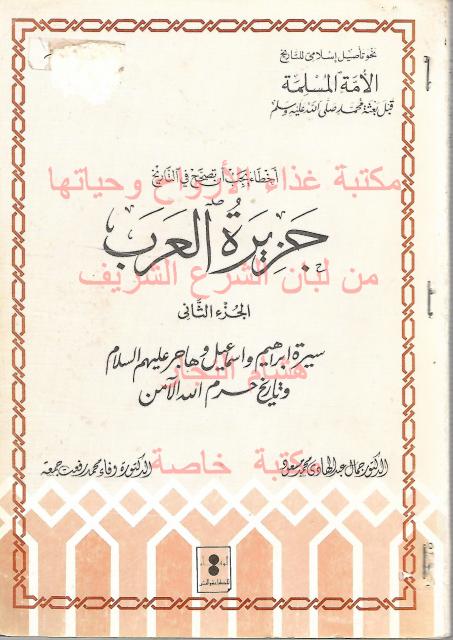 نحو تأصيل إسلامى للتاريخ
الأمة المسلمة
قبل بعثة محمد صلى الله عليه وسلم
أخطاء يجب أن تصحح في التاريخ
مكتبة غذاء الأرواح وحياتها
جَزِيرَةُ العَرَبَ
من لبان الشرع الشريف
الجُزء الثَّانى
سيرة إبراهيم وإسماعيل وهاجر عليهم السلام
هشام النجار
وتاريخ حرم الله الآمن
مكتبة خاصة
الدكتور جمال عبد الهادى محمد مسعود
الدكتورة وفاء محمد رفعت جمعه
الوفاء